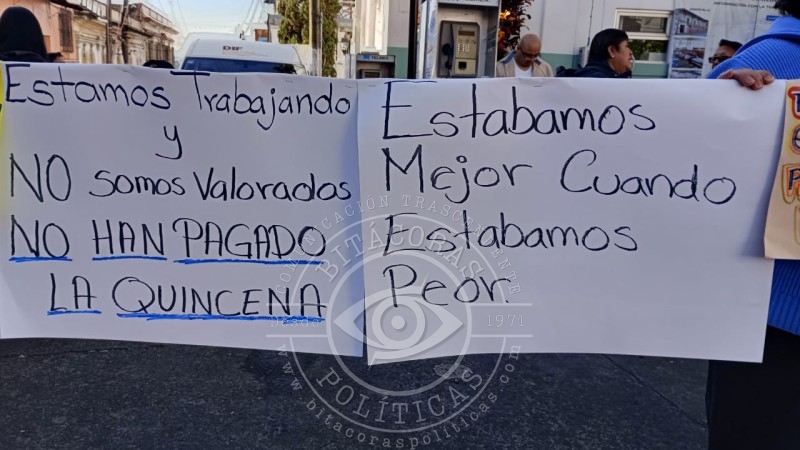 Estamos Trabajando
y
NO somos Valorados
NO HAN PAGADO
LA QUINCENA
Estabamos
Mejor Cuando
Estabamos
Peor.
DIF
COMUNICACIÓN TRASCENDENTE
BITÁCORAS
Desde 1971
POLÍTICAS
www.bitacoraspoliticas.com